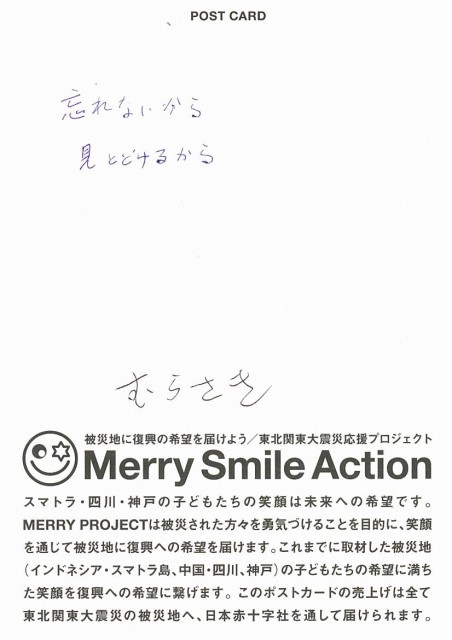 POST CARD
忘れないから
見とどけるから
むらさき
被災地に復興の希望を届けよう／東北関東大震災応援プロジェクト
Merry Smile Action
スマトラ・四川・神戸の子どもたちの笑顔は未来への希望です。
MERRY PROJECTは被災された方々を勇気づけることを目的に、笑顔
を通じて被災地に復興への希望を届けます。これまでに取材した被災地
（インドネシア・スマトラ島、中国・四川、神戸）の子どもたちの希望に満ち
た笑顔を復興への希望に繋げます。このポストカードの売上げは全て
東北関東大震災の被災地へ、日本赤十字社を通して届けられます。